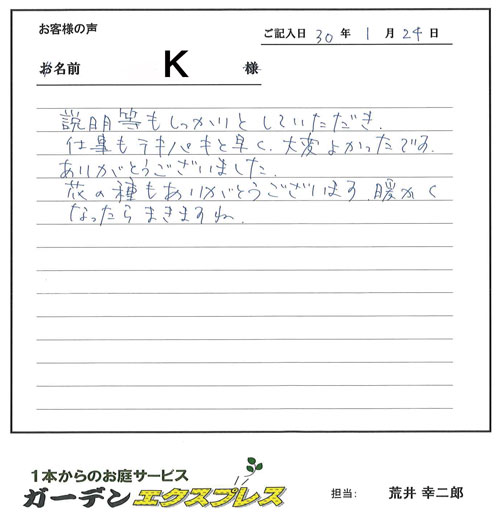 お客様の声
ご記入日 30 年 1 月 24 日
お名前 K 様
説明等もしっかりとしていただき、
仕事もテキパキと早く、大変よかったです。
ありがとうございました。
花の種もありがとうございます。暖かく
なったらまきますね。
1本からのお庭サービス
ガーデンエクスプレス
担当: 荒井 幸二郎